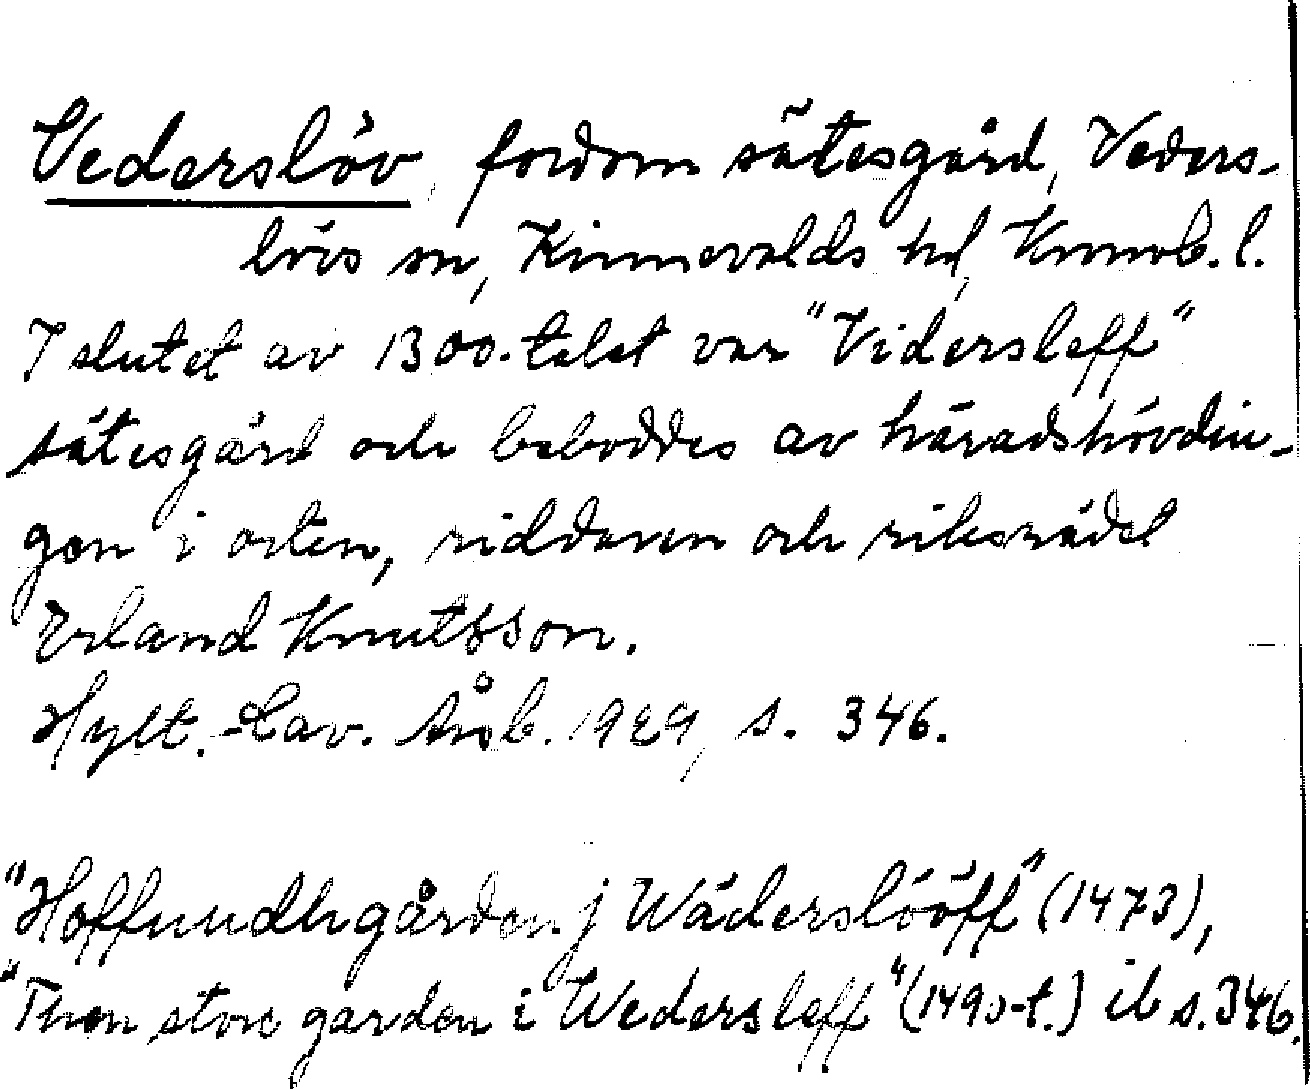 Vederslöv, fordom sätesgård, Veders-
lövs sn, Kinnevalds hd, Kronob. l.
I slutet av 1300-talet var "Vidersleff"
sätesgård och beboddes av häradshövdin-
gen i orten, riddaren och riksrådet
Erland Knutsson.
Hylt.-Cav. Årsb. 1929, s. 346.
"Hoffuudhgården j Wäderslööff" (1473),
"Then store garden i Wedersleff" (1490-t.) ib s. 346.